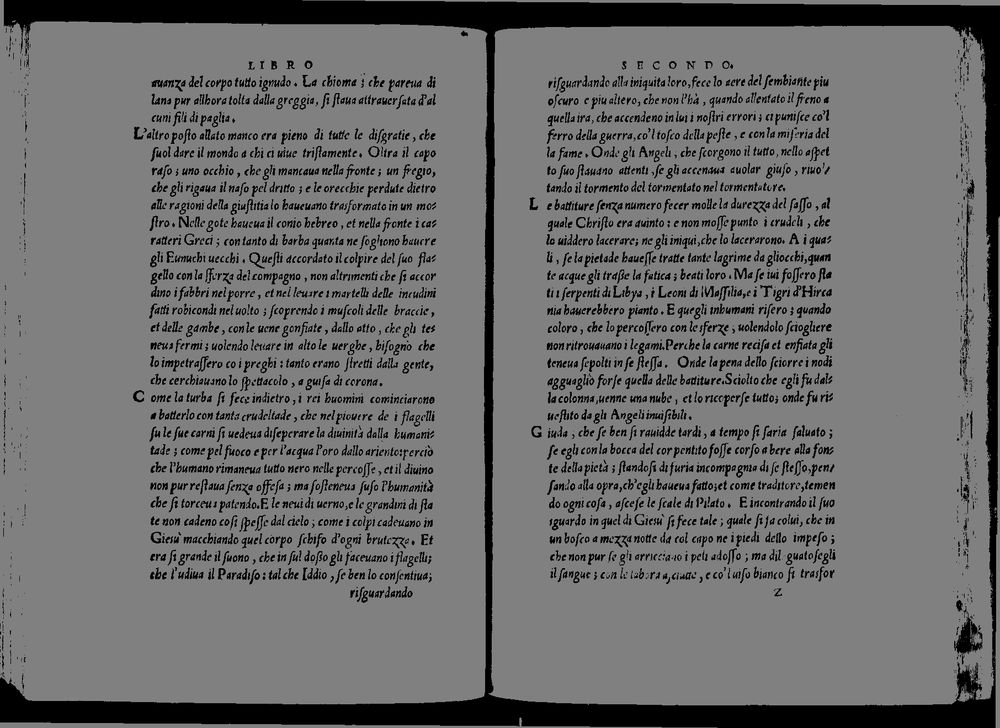 LIBRO
auanza del corpo tutto ignudo. La chioma; che pareua di
lana pur allhora tolta dalla greggia, si staua attrauersata d'al
cuni fili di paglia.
L'altro posto allato manco era pieno di tutte le disgratie, che
suol dare il mondo a chi ci uiue tristamente. Oltra il capo
raso; uno occhio, che gli mancaua nella fronte; un fregio,
che gli rigaua il naso pel dritto; e le orecchie perdute dietro
alle ragioni della giustitia lo haueuano trasformato in un mo=
stro. Nelle gote haueua il conio hebreo, et nella fronte i ca=
ratteri Greci; con tanto di barba quanta ne sogliono hauere
gli Eunuchi uecchi. Questi accordato il colpire del suo fla=
gello con la sferza del compagno, non altrimenti che si accor
dino i fabbri nel porre, et nel leuare i martelli delle incudini
fatti robicondi nel uolto; scoprendo i muscoli delle braccie,
et delle gambe, con le uene gonfiate, dallo atto, che gli te=
neua fermi; uolendo leuare in alto le uerghe, bisognò che
lo impetrassero co i preghi: tanto erano stretti dalla gente,
che cerchiauano lo spettacolo, a guisa di corona.
Come la turba si fece indietro, i rei huomini cominciarono
a batterlo con tanta crudeltade, che nel piouere de i flagelli
su le sue carni si uedeua diseperare la diuinità dalla humani=
tade; come pel fuoco e per l'acqua l'oro dallo ariento: perciò
che l'humano rimaneua tutto nero nelle percosse, et il diuino
non pur restaua senza offesa; ma sosteneua suso l'humanità
che si torceua patendo. E le neui di uerno, e le grandini di sta
te non cadeno cosi spesse dal cielo; come i colpi cadeuano in
Giesù macchiando quel corpo schifo d'ogni brutezza. Et
era si grande il suono, che in sul dosso gli faceuano i flagelli;
che l'udiua il Paradiso: tal che Iddio, se ben lo consentiua;
risguardando
SECONDO.
risguardando alla iniquita loro, fece lo aere del sembiante piu
oscuro e piu altero, che non l'hà, quando allentato il freno a
quella ira, che accendeno in lui i nostri errori; ci punisce co'l
ferro della guerra, co'l tosco della peste, e con la miseria del
la fame. Onde gli Angeli, che scorgono il tutto, nello aspet
to suo stauano attenti, se gli accennaua auolar giuso, riuol=
tando il tormento del tormentato nel tormentatore.
Le battiture senza numero fecer molle la durezza del sasso, al
quale Christo era auinto: e non mosse punto i crudeli, che
lo uiddero lacerare; ne gli iniqui, che lo lacerarono. A i qua=
li, se la pietade hauesse tratte tante lagrime da gliocchi, quan
te acque gli trasse la fatica; beati loro. Ma se iui fossero sta
ti i serpenti di Libya, i Leoni di Massilia, e i Tigri d'Hirca
nia hauerebbero pianto. E quegli inhumani risero; quando
coloro, che lo percossero con le sferze, uolendolo sciogliere
non ritrouauano i legami. Perche la carne recisa et enfiata gli
teneua sepolti in se stessa. Onde la pena dello sciorre i nodi
agguagliò forse quella delle battiture. Sciolto che egli fu dal=
la colonna, uenne una nube, et lo ricoperse tutto; onde fu ri=
uestito da gli Angeli inuisibili.
Giuda, che se ben si rauidde tardi, a tempo si saria saluato;
se egli con la bocca del cor pentito fosse corso a bere alla fon=
te della pietà; standosi di furia in compagnia di se stesso, pen/
sando alla opra, ch'egli haueua fatto; et come traditore, temen
do ogni cosa, ascese le scale di Pilato. E incontrando il suo
sguardo in quel di Giesù si fece tale; quale si fa colui, che in
un bosco a mezza notte da col capo ne i piedi dello impeso;
che non pur se gli arricciano i peli adosso; ma dilguatosegli
il sangue; con le labora asciutte, e co'l uiso bianco si trasfor
Z